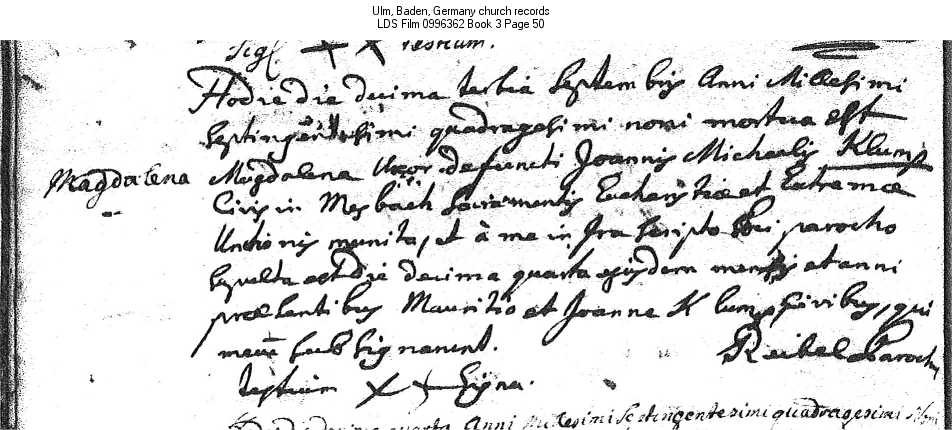 Ulm, Baden, Germany church records
LDS Film 0996362 Book 3 Page 50
Sig{ X X testium.
Hodie die decima tertia Septembris Anni Millesimi
Septingentesimi quadragesimi noni mortua est
Magdalena
Magdalena Uxor defuncti Joannis Michaelis Klump
Civis in Mesbach Sacramentis Eucharistiæ et Extremæ
Unctionis munita, et à me infra scripto parocho
Sepulta est die decima quarta ejusdem mensis et anni
præsentibus Mauritio et Joanne Klump civibus, qui
mecum subsignarunt.
Reibel Parochus
testium X X Signa.
quarta Anni Millesimi Septingentesimi quadragesimi Noni